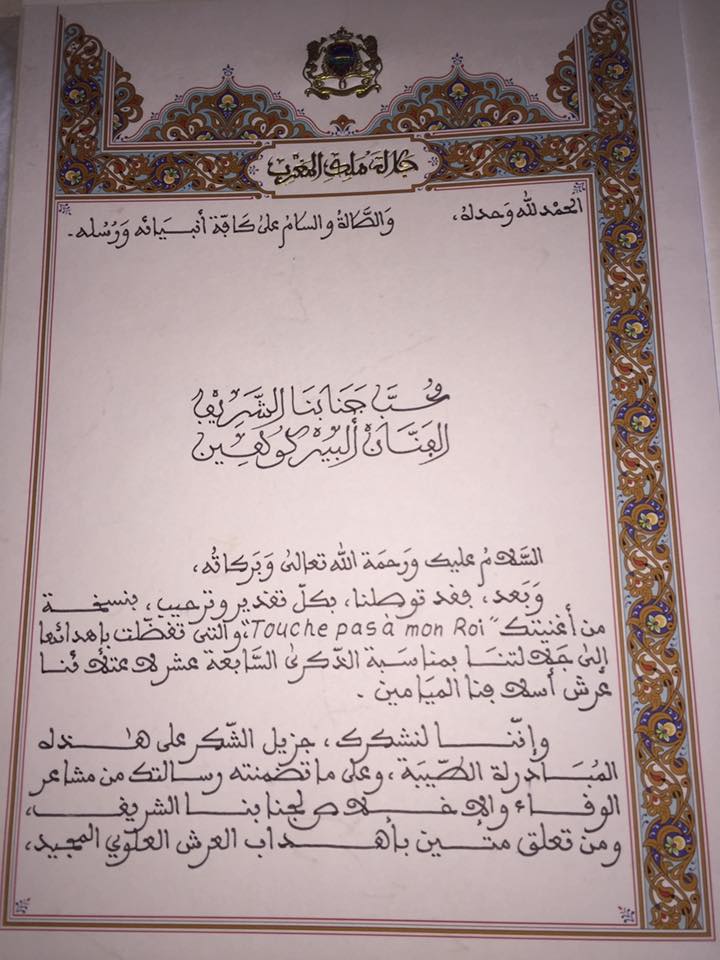 جلالة ملك المغرب
الحمْد لله وَحدهُ، وَالصَّلاةُ والسلامُ على كَافّة أنبيَائه وَرُسُله.
مُحبَّ جَنابنَا الشَّريف
الفنَّان ألبير كوهين
السَّلامُ عليك ورَحمَة الله تعالى وَبَركاتُه،
وَبَعد، فقد توصلنا، بكلّ تقدير وترحيب، بنسخة
من أغنيتك "Touche pas à mon Roi"، والتي تفضّلت بإهدائها
إلى جَلالتنَا بمناسَبة الذّكرى السّابعة عشر لاعتلائنا
عرش أسلافنا الميَامين.
وإنّنا لنشكرك، جزيل الشّكر على هذه
المُبَادرة الطيّبة، وعلى ما تضمنته رسالتك من مشاعر
الوفاء والإخلاص لجنابنا الشريف،
ومن تعلق متين بأهداب العرش العلوي المجيد،